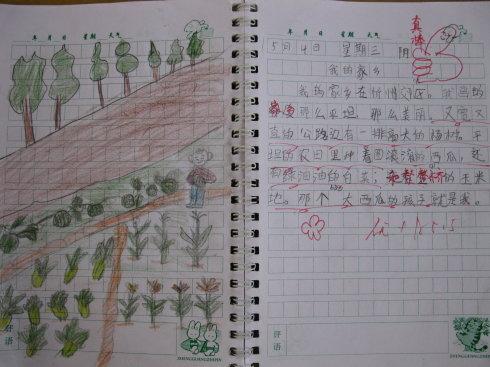 年 月 日 星期 天气
年 月 日 星期 天气
5月4日 星期三 阴
真棒
我的家乡
我的家乡在
家乡那么平坦 那么美丽。又宽又
直的公路边有一排高大的杨树。平
坦的农田里种着圆滚滚的西瓜,
绿油油的白菜;和整整齐齐的玉米
地。那个 大西瓜的孩子就是我。
评语
ZHENGGUANGZHIPIN
评语
ZHENGGUANGZHIPIN